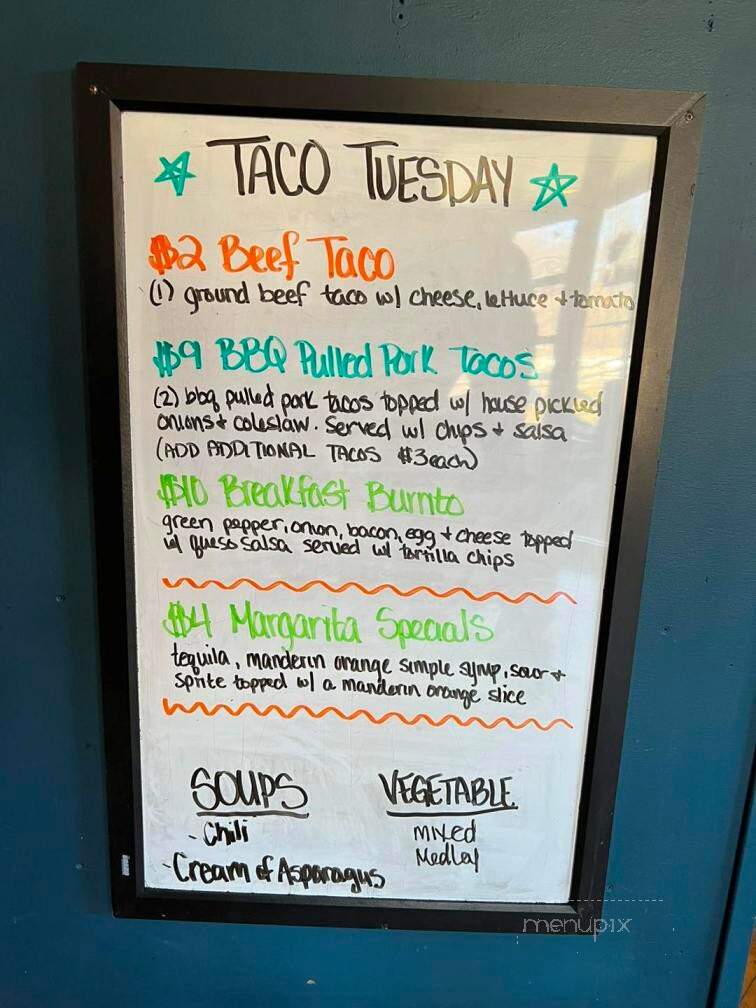 TACO TUESDAY
$2 Beef Taco
(1) ground beef taco w/ cheese, lettuce + tomato
$9 BBQ Pulled Pork Tacos
(2) bbq pulled pork tacos topped w/ house pickled
onions + coleslaw. Served w/ chips + salsa
(ADD ADDITIONAL TACOS $3 each)
$10 Breakfast Burrito
green pepper, onion, bacon, egg + cheese topped
w/ queso salsa served w/ tortilla chips
$4 Margarita Specials
tequila, manderin orange simple syrup, sour +
sprite topped w/ a manderin orange slice
SOUPS
- Chili
- Cream of Asparagus
VEGETABLE
Mixed
Medley
menupix